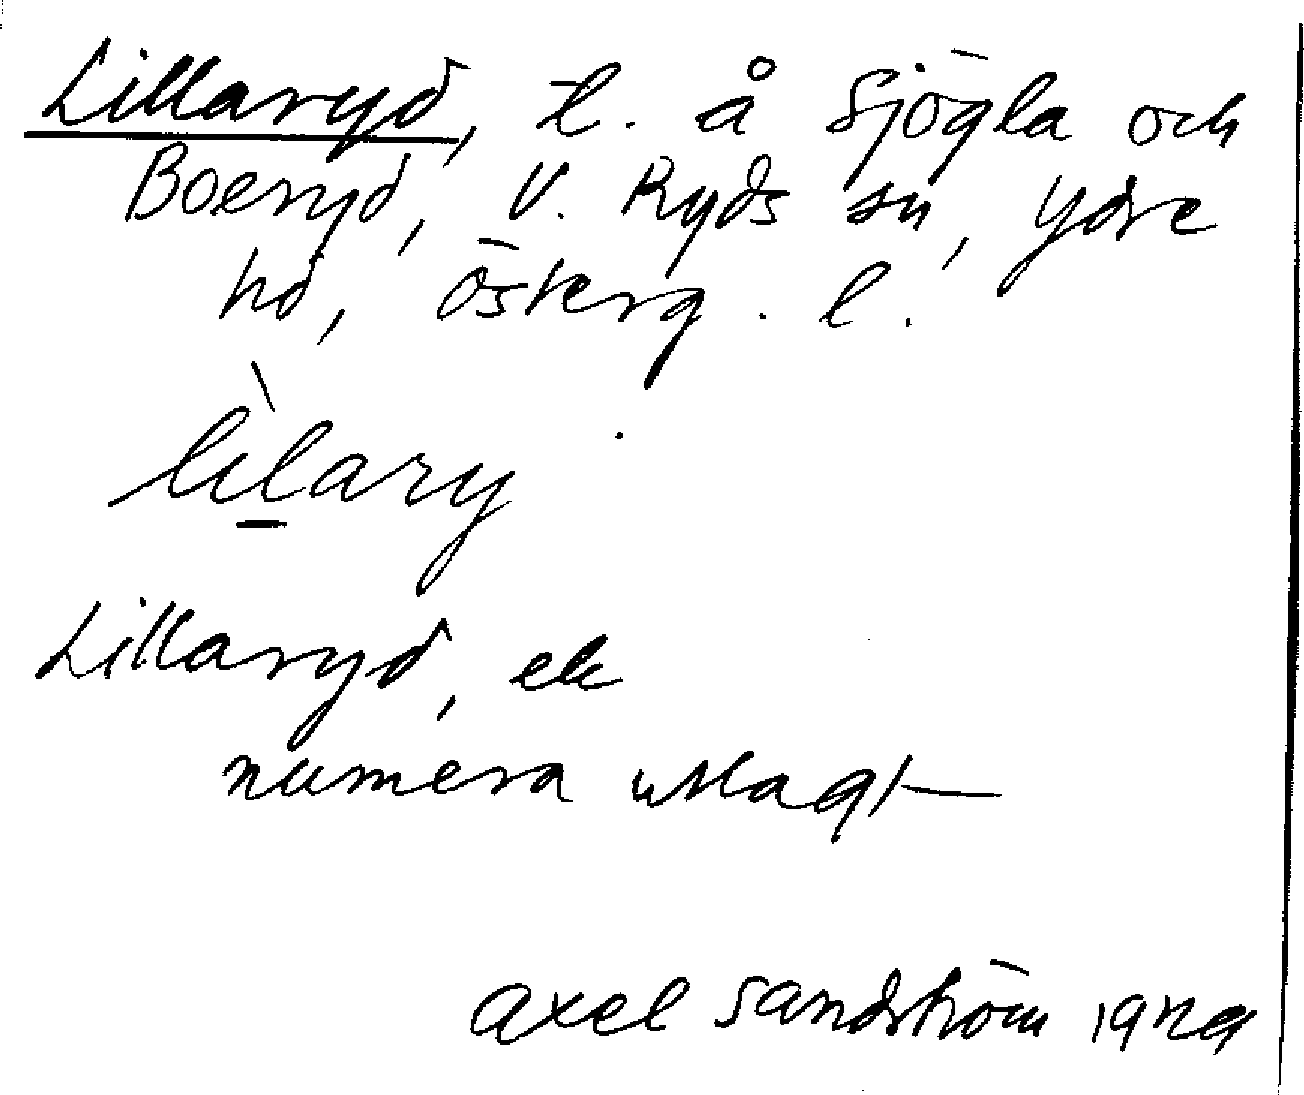 Lillaryd, t. å Sjögla och
Boeryd, V. Ryds sn, Ydre
hd, Österg. l.
lìlary
Lillaryd, ek
numera utlagt
Axel Sandström 1929